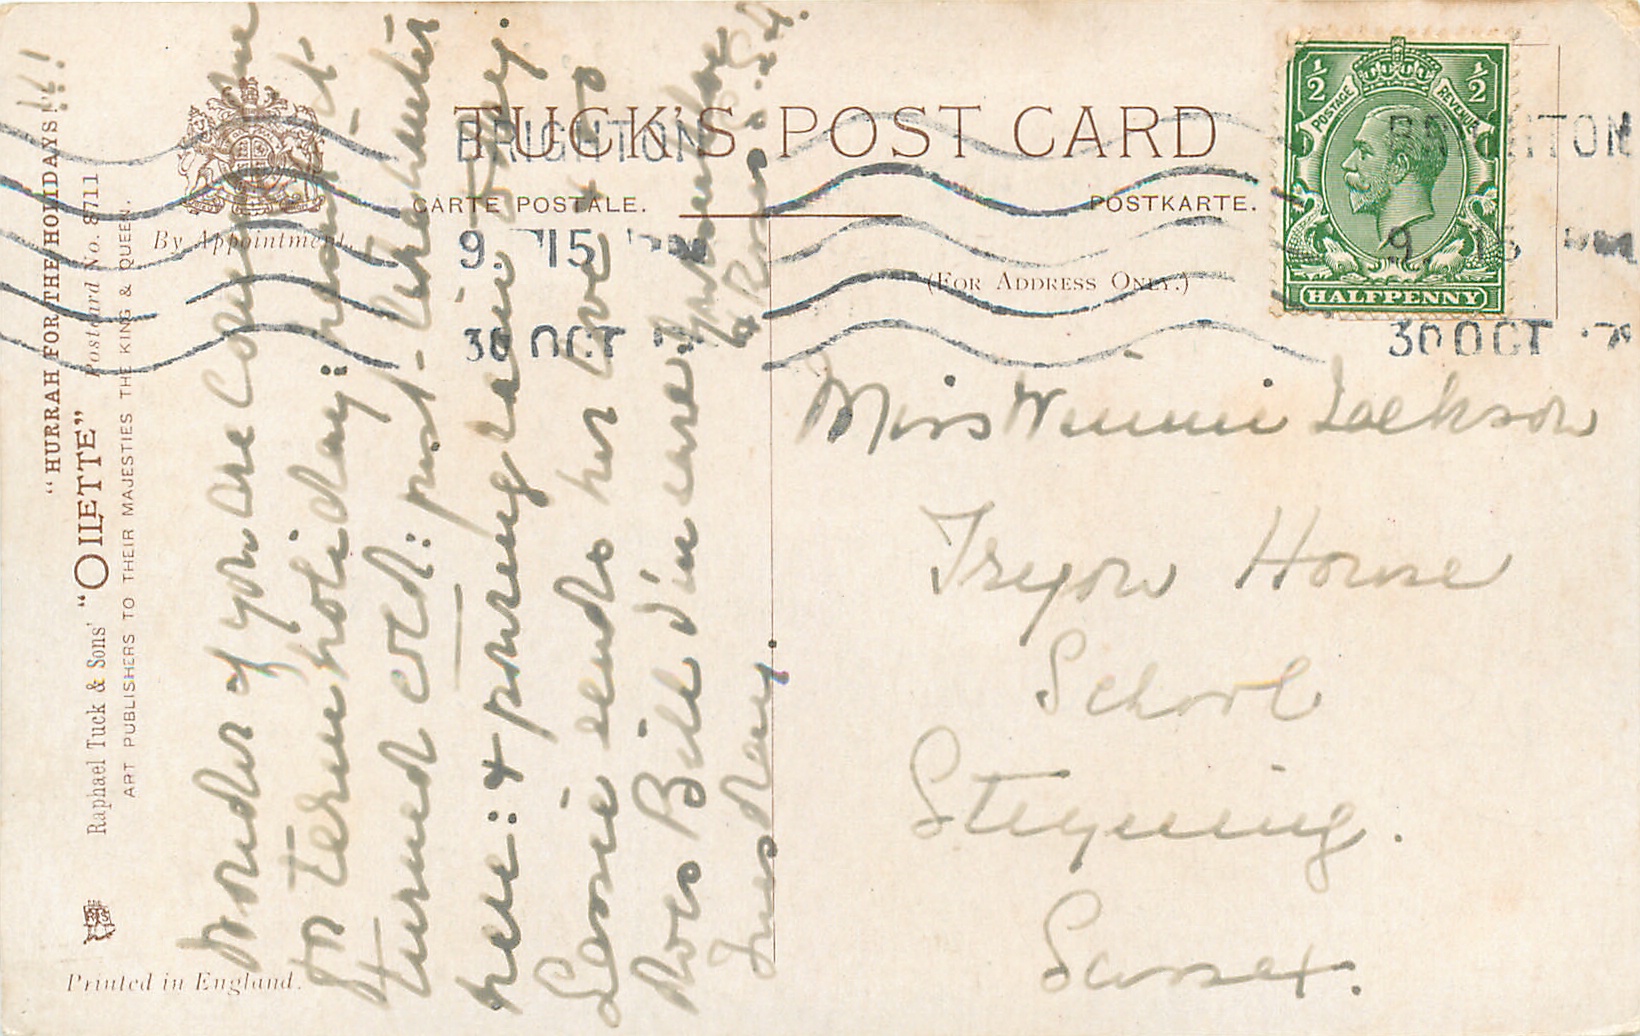 TUCK'S POST CARD
CARTE POSTALE.
POSTKARTE.
(FOR ADDRESS ONLY.)
By Appointment.
"HURRAH FOR THE HOLIDAYS!"
Raphael Tuck & Sons' "OILETTE" Postcard No. 8711
ART PUBLISHERS TO THEIR MAJESTIES THE KING & QUEEN.
Printed in England.
BRIGHTON
9. 15
30 OCT
POSTAGE REVENUE
½ ½
HALFPENNY
BRIGHTON
9. 15
30 OCT
Miss Winnie Jackson
Tryon House
School
Steyning.
Sussex.
Wonder if you are coming
for term holiday: hasn't it
turned cold: just
here: & pouring
sends her love to
Does Bill